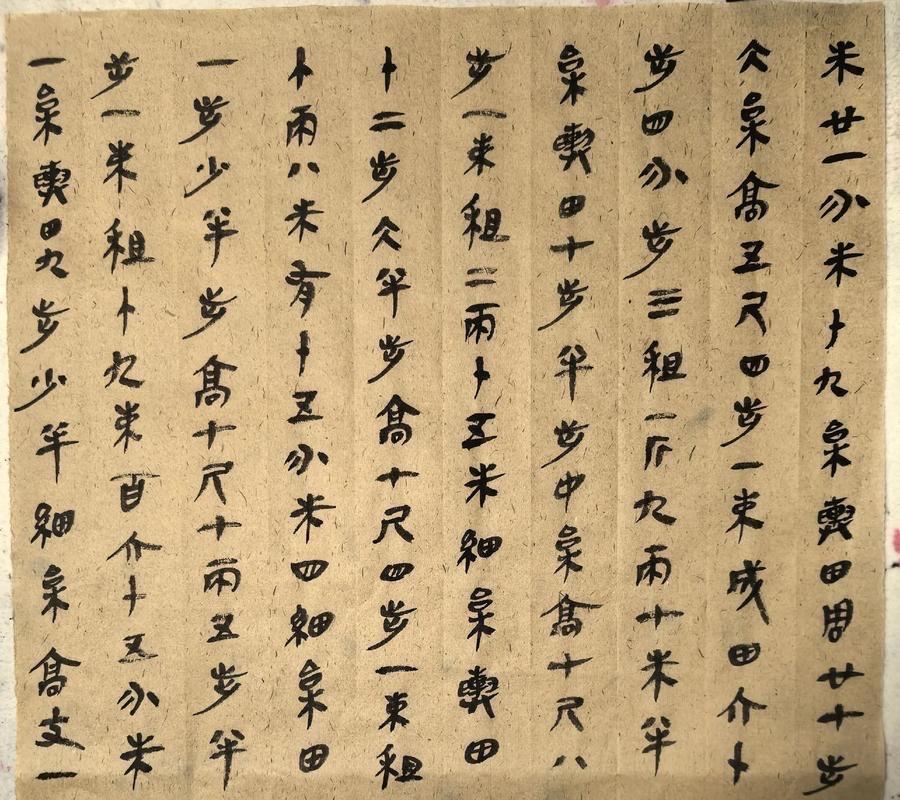 朱廿一分朱十九枲輿田周廿七步
大枲高五尺四步一束成田六十
步四分步三租一斤九兩七朱半
枲輿田七步半步中枲高七尺八
步一束租二兩十五朱細枲輿田
十二步大半步高七尺四步一束租
十兩八朱有十五分朱四細枲田
一步少半步高七尺七兩五步半
步一束租十九朱百六十五分朱
一枲輿田九步少半細枲高丈一